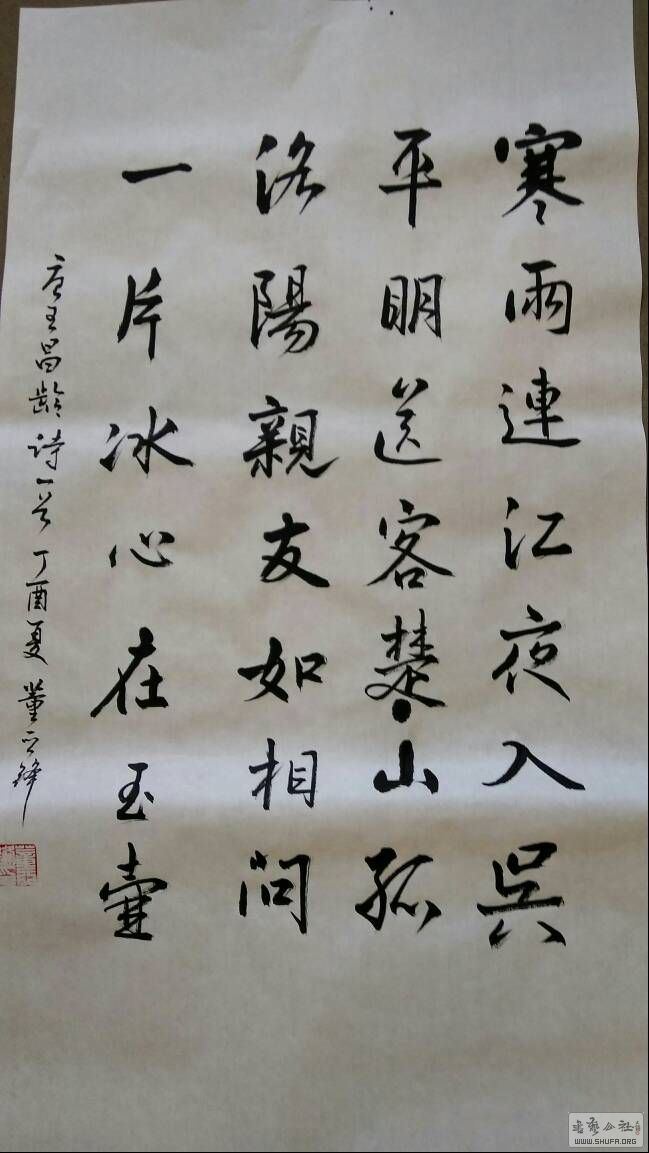 寒雨連江夜入吳
平明送客楚山孤
洛陽親友如相問
一片冰心在玉壺
唐王昌龄诗一首 丁酉夏 董
书艺公社
WWW.SHUFA.ORG